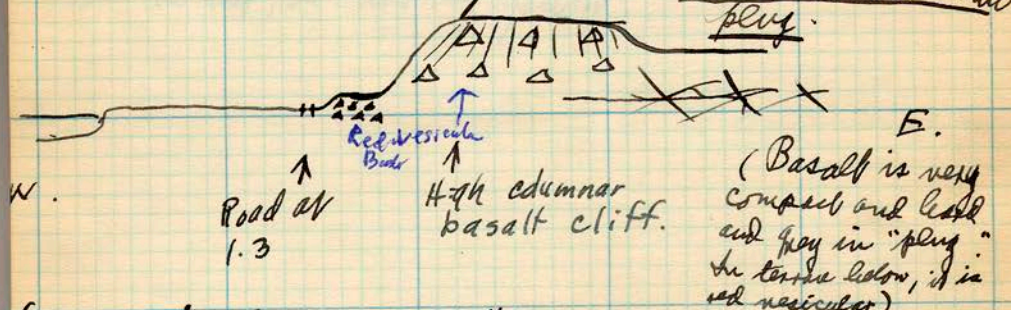 plug.
Red vesicular
E.
W.
Road at
1.3
High columnar
basalt cliff.
(Basalt is very
compact and hard
and grey in "plug."
In terrace below, it is
red vesicular)